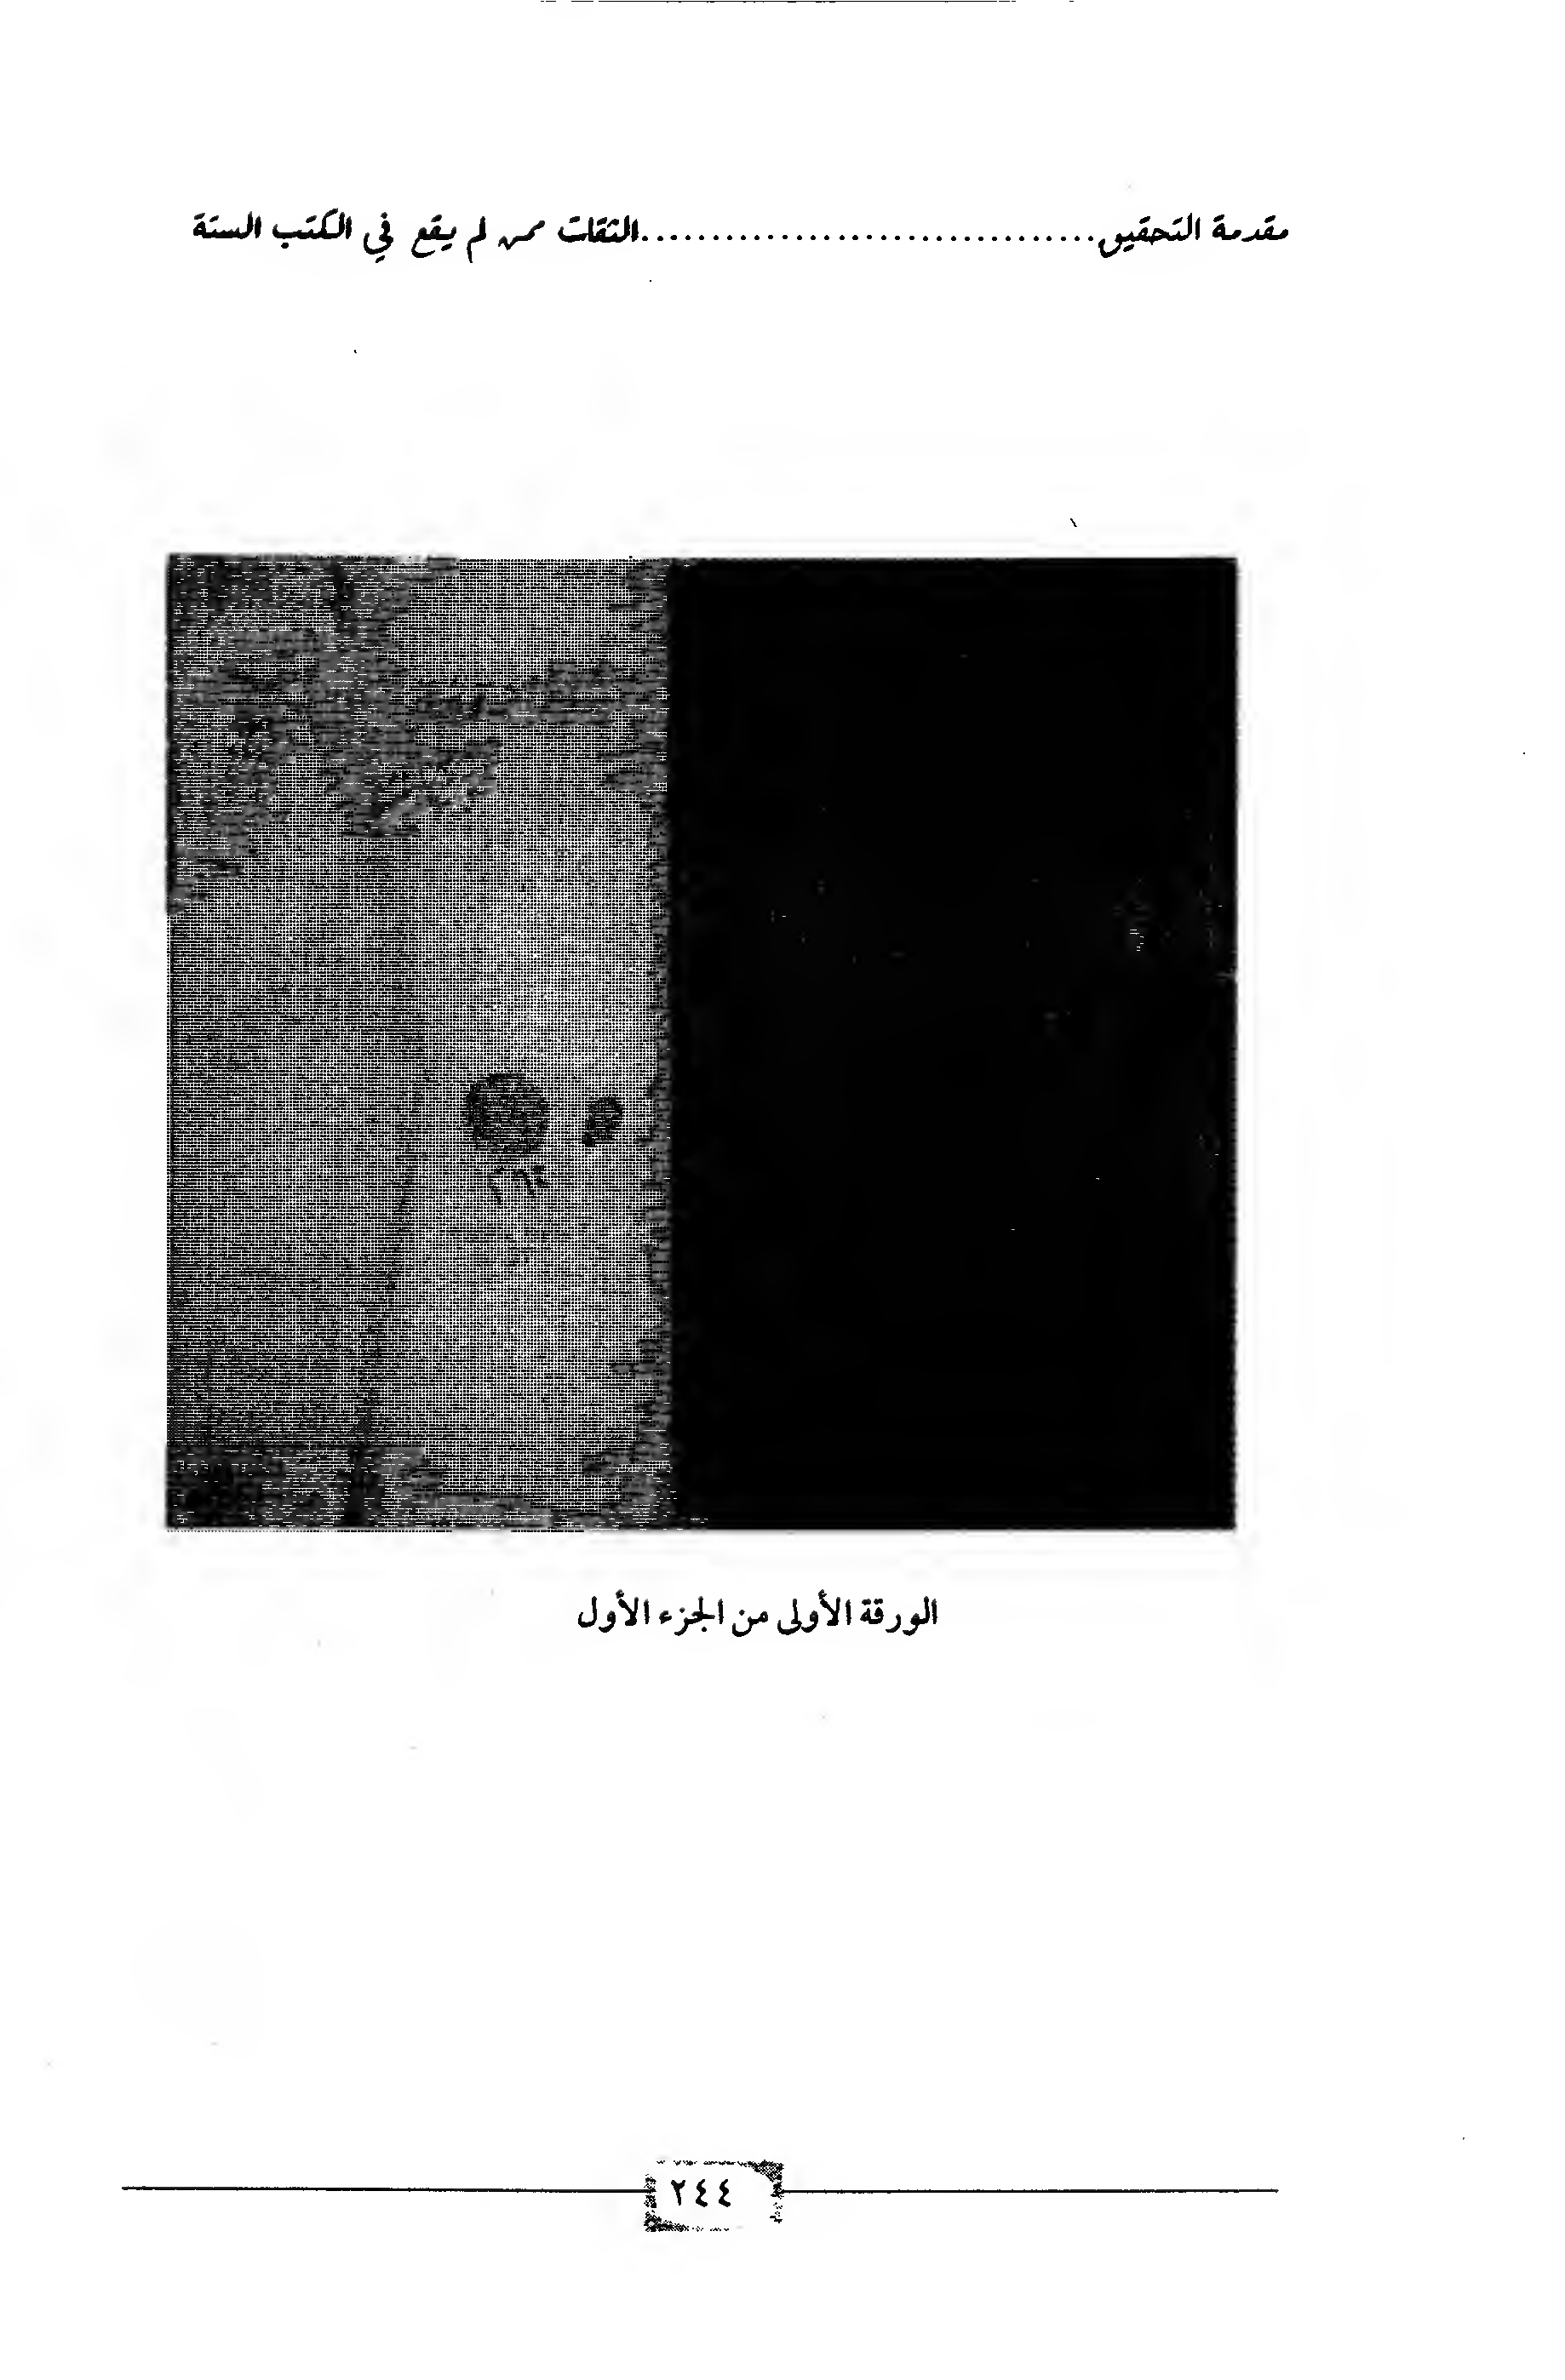 مقدمة التحقيق................................الثقات ممن لم يقع في الكتب الستة
الورقة الأولى من الجزء الأول
٢٤٤